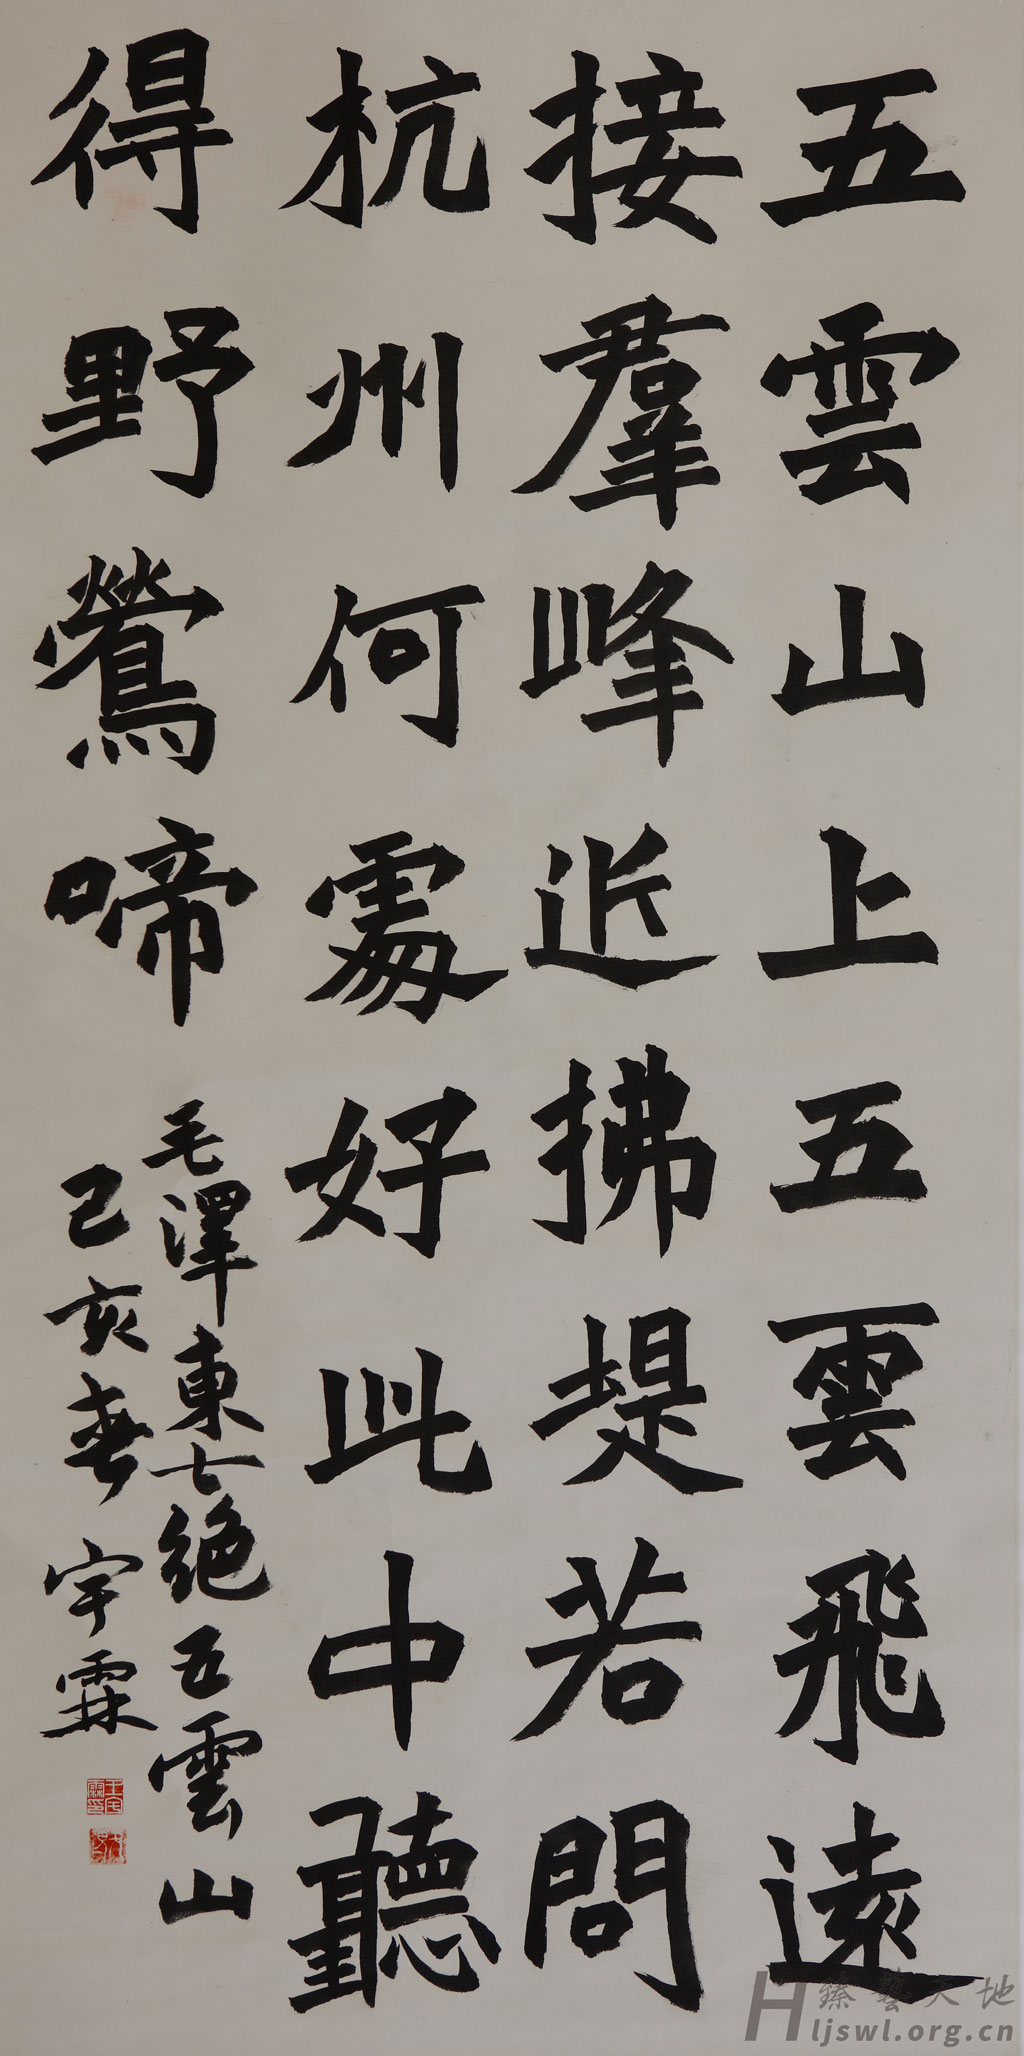 五雲山上五雲飛遠
接羣峰近拂堤若問
杭州何處好此中聽
得野鶯啼
毛澤東七絕五雲山
己亥春宇霖
臻藝天地
Hljswl.org.cn